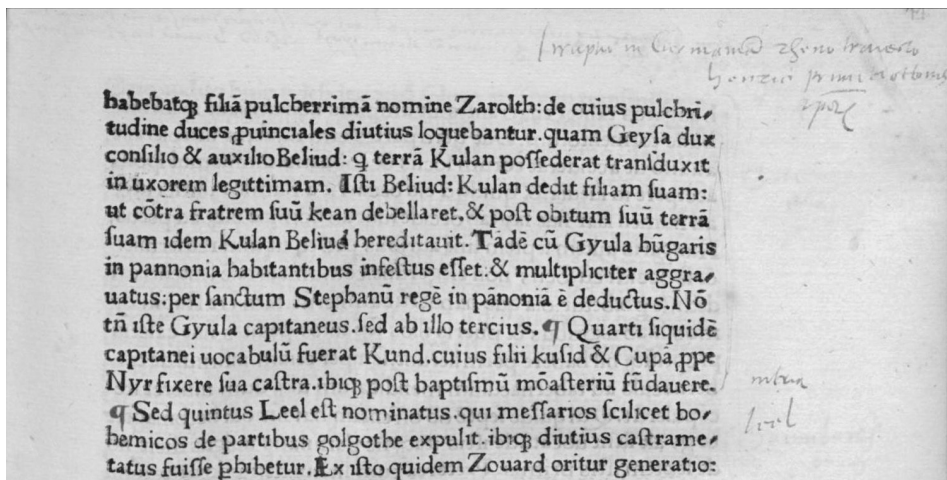 habebatqꝫ filiā pulcherrimā nomine Zaroltb: de cuius pulchri⸗
tudine duces ꝓuinciales diutius loquebantur. quam Geysa dux
consilio & auxilio Beliud: ꝙ terrā Kulan possederat transduxit
in uxorem legittimam. Isti Beliud: Kulan dedit filiam suam:
ut cōtra fratrem suū kean debellaret. & post obitum suū terrā
suam idem Kulan Beliud hereditauit. Tādē cū Gyula būgaris
in pannonia habitantibus infestus esset. & multipliciter aggra⸗
uatus: per sanctum Stephanū regē in pānoniā ē deductus. Nō
tn̄ iste Gyula capitaneus. sed ab illo tercius. ¶ Quarti siquidē
capitanei uocabulū fuerat Kund. cuius filii kusid & Cupā ꝓpe
Nyr fixere sua castra. ibiqꝫ post baptismū mōasteriū fūdauere.
¶ Sed quintus Leel est nominatus. qui messarios scilicet bo⸗
hemicos de partibus golgothe expulit. ibiqꝫ diutius castrame⸗
tatus fuisse ꝓhibetur. Ex isto quidem Zouard oritur generatio:
in Germaniā rheno
primi